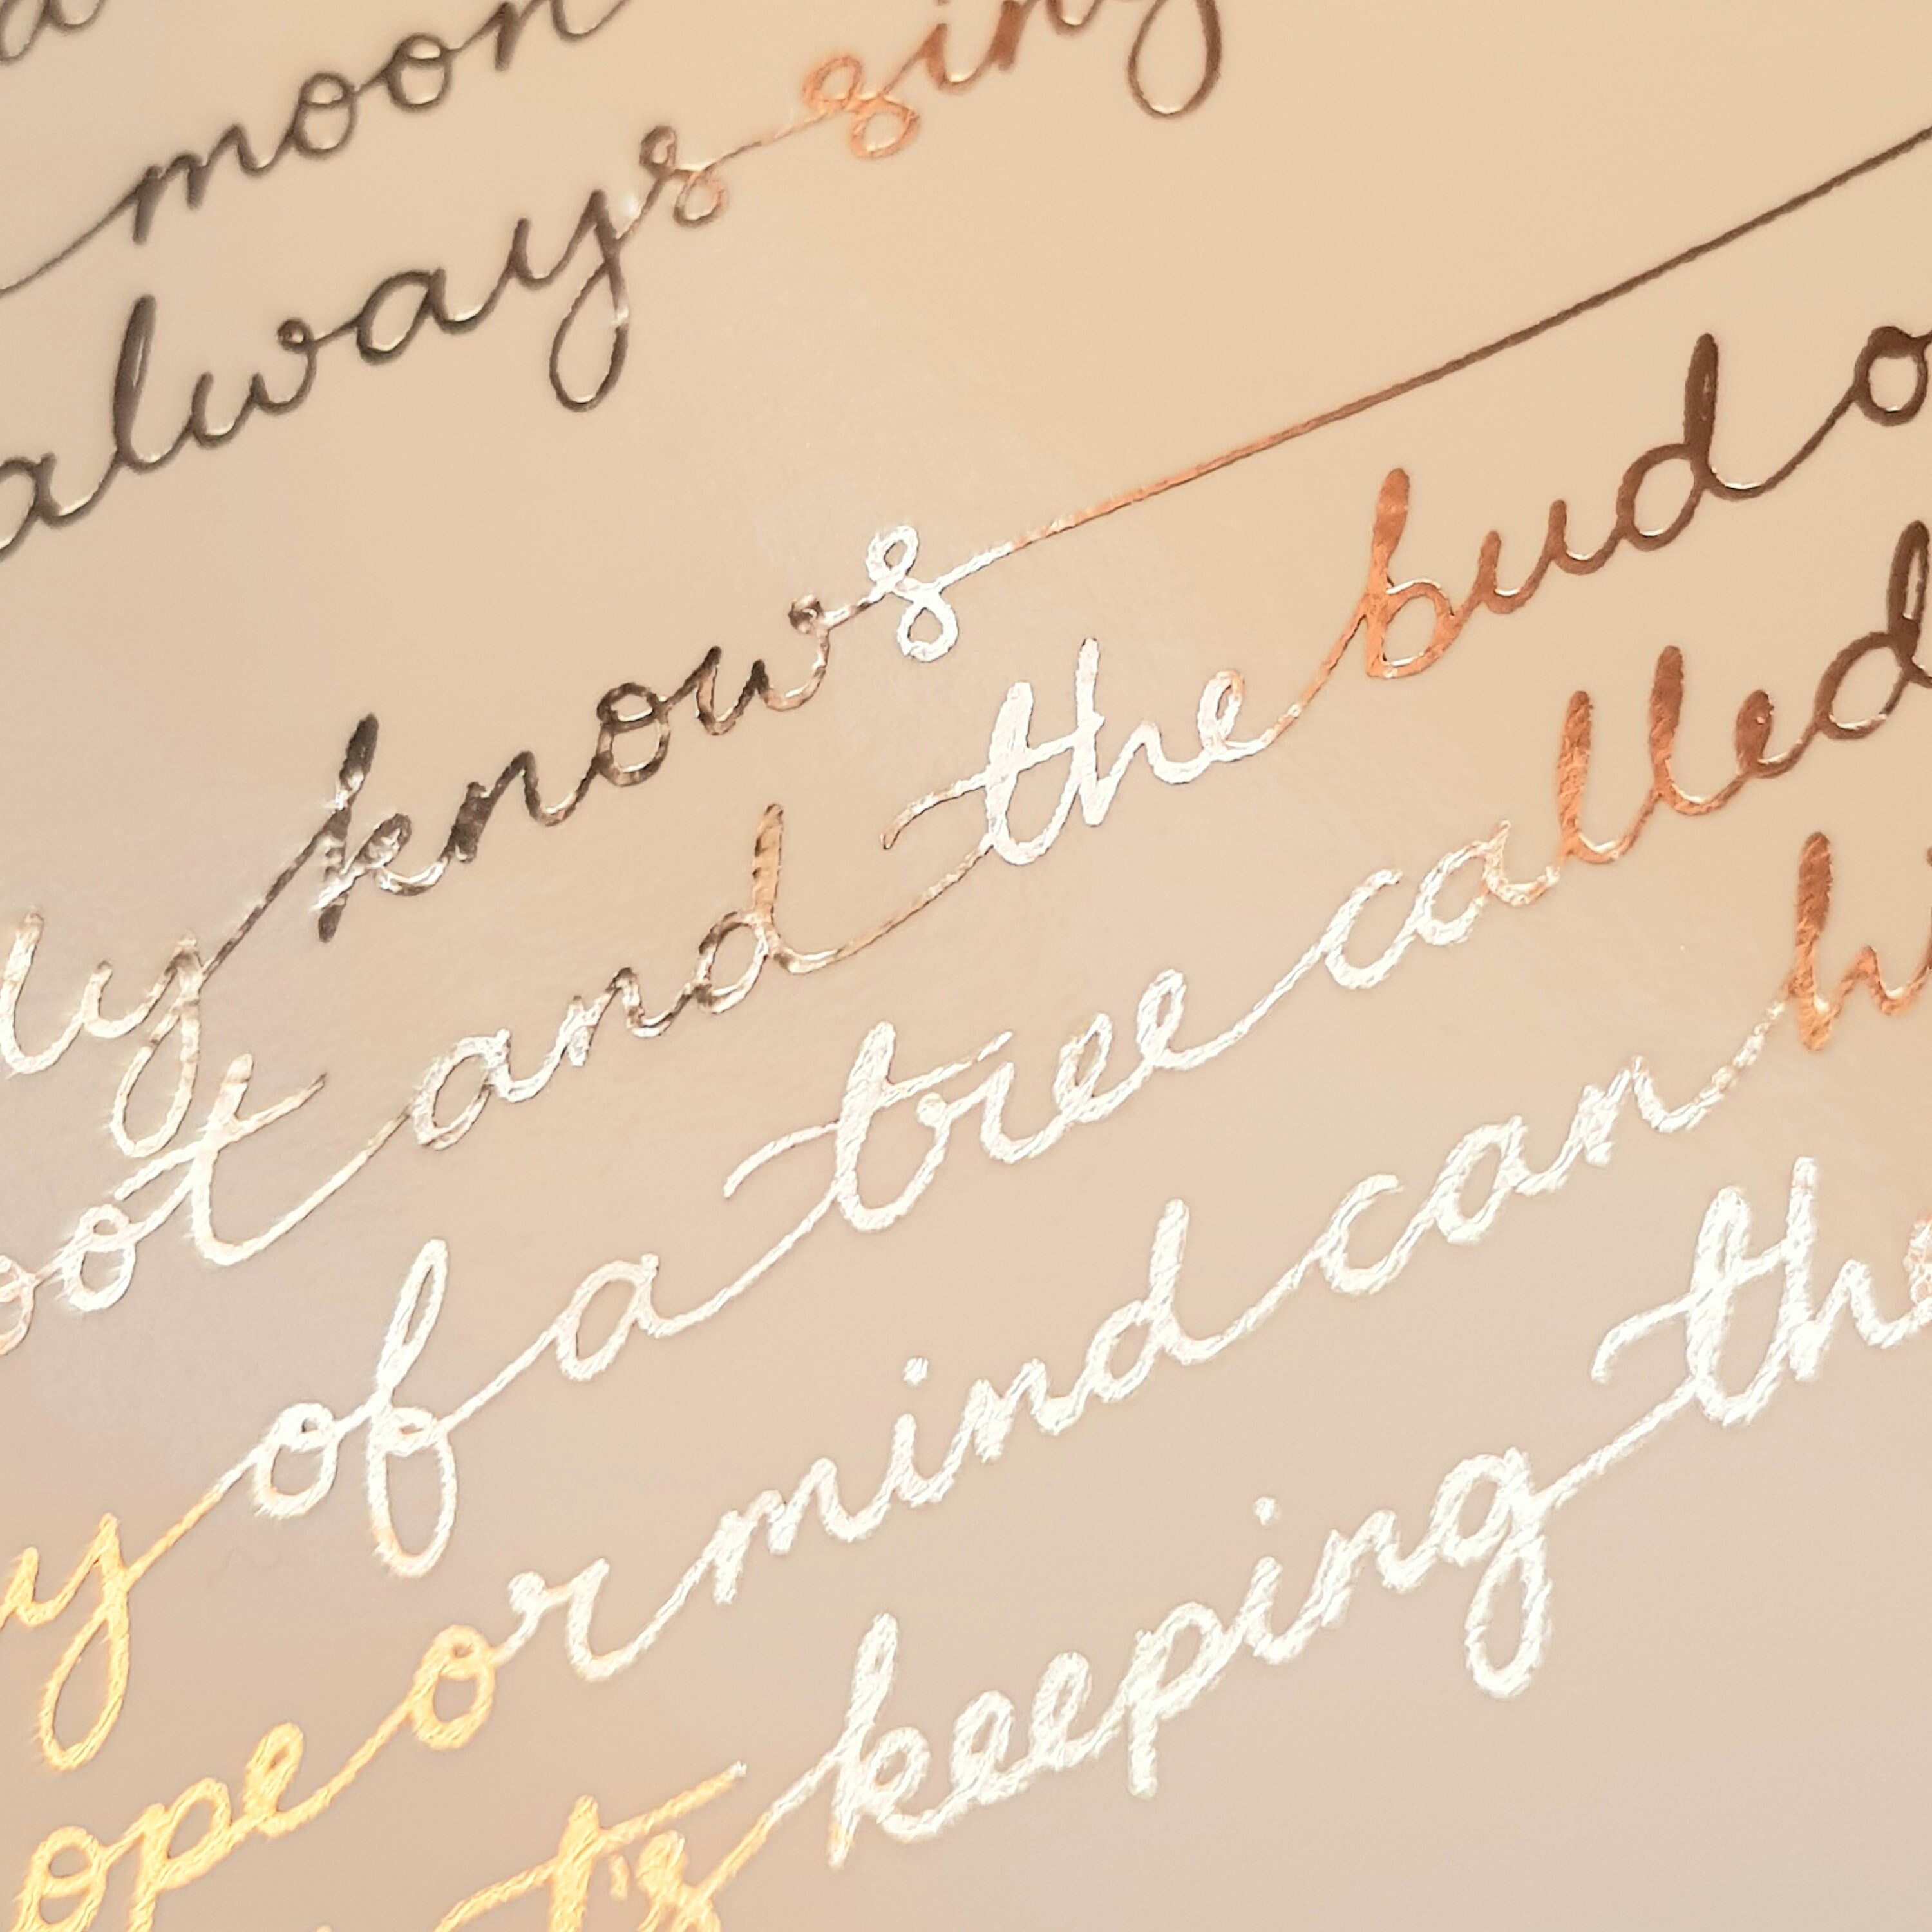 moon
always sing
ly knows
oot and the bud o
y of a tree called
ope or mind can hi
t's keeping the